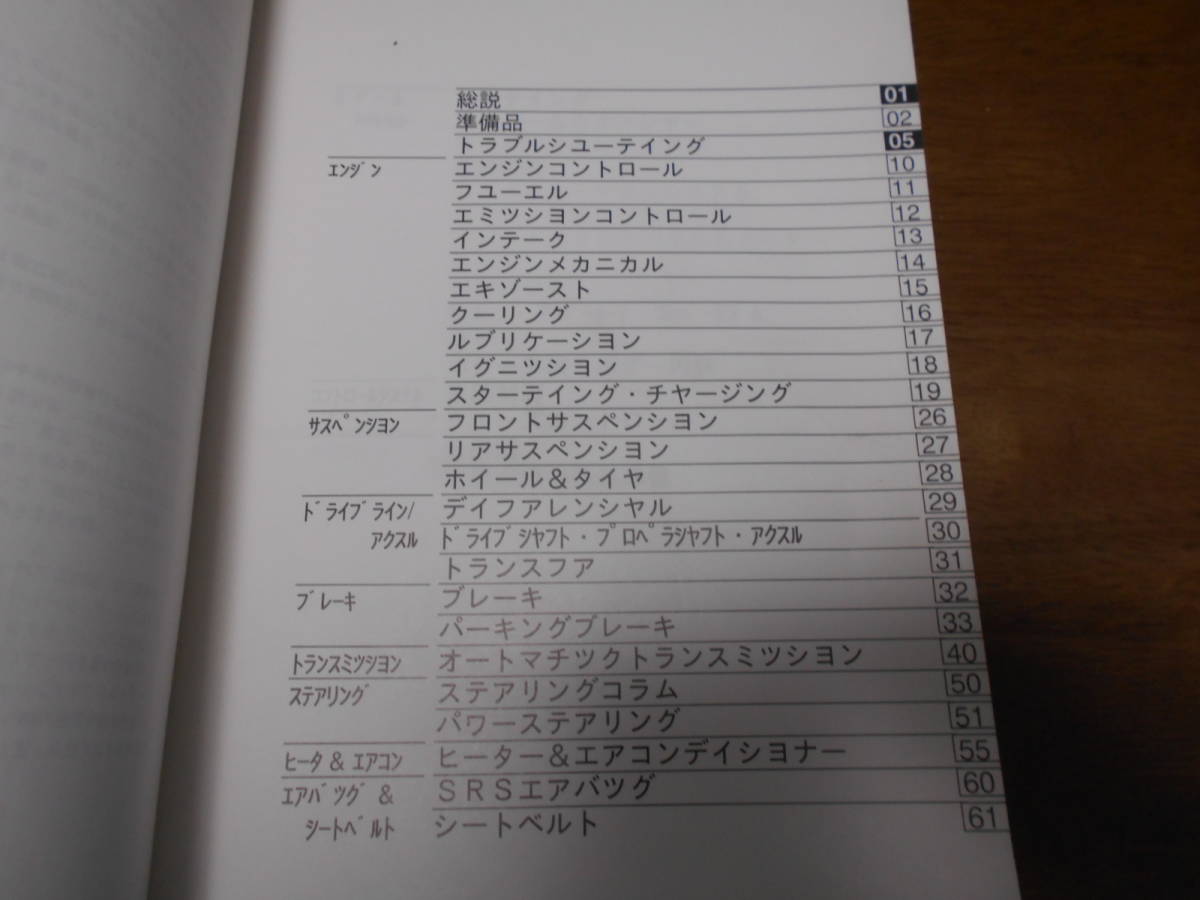 総説 01
準備品 02
トラブルシユーテイング 05
ｴﾝｼﾞﾝ エンジンコントロール 10
フユーエル 11
エミツシヨンコントロール 12
インテーク 13
エンジンメカニカル 14
エキゾースト 15
クーリング 16
ルブリケーシヨン 17
イグニツシヨン 18
スターテイング・チヤージング 19
ｻｽﾍﾟﾝｼﾖﾝ フロントサスペンシヨン 26
リアサスペンシヨン 27
ホイール＆タイヤ 28
ﾄﾞﾗｲﾌﾞﾗｲﾝ/ デイフアレンシヤル 29
ｱｸｽﾙ ﾄﾞﾗｲﾌﾞｼﾔﾌﾄ・ﾌﾟﾛﾍﾟﾗｼﾔﾌﾄ・ｱｸｽﾙ 30
トランスフア 31
ﾌﾞﾚｰｷ ブレーキ 32
パーキングブレーキ 33
ﾄﾗﾝｽﾐﾂｼﾖﾝ オートマチツクトランスミツシヨン 40
ｽﾃｱﾘﾝｸﾞ ステアリングコラム 50
パワーステアリング 51
ﾋｰﾀ & ｴｱｺﾝ ヒーター＆エアコンデイシヨナー 55
ｴｱﾊﾞﾂｸﾞ & ＳＲＳエアバツグ 60
ｼｰﾄﾍﾞﾙﾄ シートベルト 61